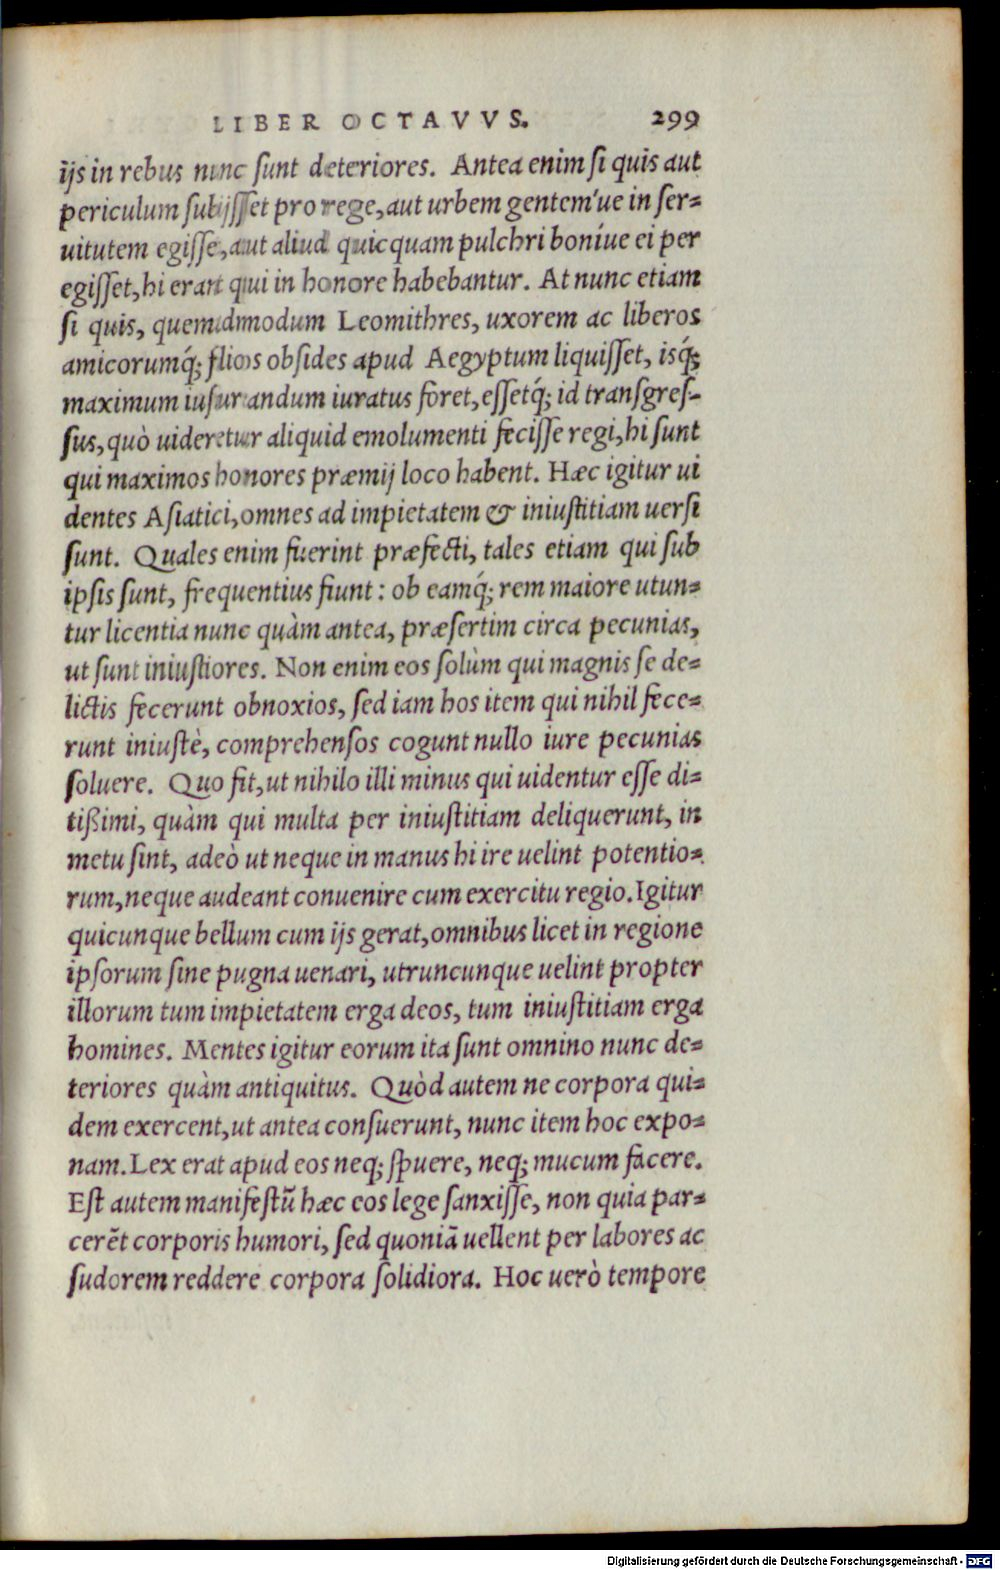 LIBER OCTAVVS. 299
ijs in rebus nunc sunt deteriores. Antea enim si quis aut
periculum subijsset pro rege, aut urbem gentem'ue in ser=
uitutem egisse, aut aliud quicquam pulchri boni'ue ei per
egisset, hi erant qui in honore habebantur. At nunc etiam
si quis, quemadmodum Leomithres, uxorem ac liberos
amicorumq́; filios obsides apud Aegyptum liquisset, isq́;
maximum iusiurandum iuratus foret, essetq́; id transgres-
sus, quò uideretur aliquid emolumenti fecisse regi, hi sunt
qui maximos honores præmij loco habent. Hæc igitur ui
dentes Asiatici, omnes ad impietatem & iniustitiam uersi
sunt. Quales enim fuerint præfecti, tales etiam qui sub
ipsis sunt, frequentius fiunt: ob eamq́; rem maiore utun=
tur licentia nunc quàm antea, præsertim circa pecunias,
ut sunt iniustiores. Non enim eos solùm qui magnis se de=
lictis fecerunt obnoxios, sed iam hos item qui nihil fece=
runt iniustè, comprehensos cogunt nullo iure pecunias
soluere. Quo fit, ut nihilo illi minus qui uidentur esse di=
tißimi, quàm qui multa per iniustitiam deliquerunt, in
metu sint, adeò ut neque in manus hi ire uelint potentio=
rum, neque audeant conuenire cum exercitu regio. Igitur
quicunque bellum cum ijs gerat, omnibus licet in regione
ipsorum sine pugna uenari, utruncunque uelint propter
illorum tum impietatem erga deos, tum iniustitiam erga
homines. Mentes igitur eorum ita sunt omnino nunc de=
teriores quàm antiquitus. Quòd autem ne corpora qui=
dem exercent, ut antea consuerunt, nunc item hoc expo=
nam. Lex erat apud eos neq; spuere, neq; mucum facere.
Est autem manifestũ hæc eos lege sanxisse, non quia par=
cerẽt corporis humori, sed quoniã uellent per labores ac
sudorem reddere corpora solidiora. Hoc uerò tempore
Digitalisierung gefördert durch die Deutsche Forschungsgemeinschaft - DFG